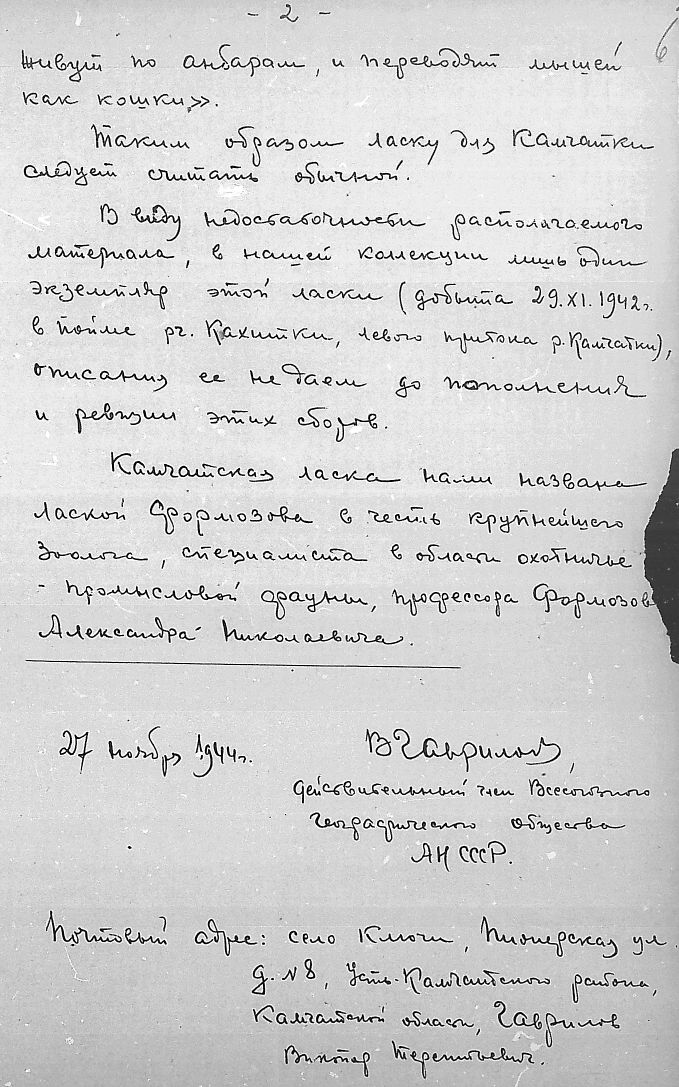 - 2 -
6
живут по анбарам, и переводят мышей
как кошки».
Таким образом ласку для Камчатки
следует считать обычной.
В виду недостаточности располагаемого
материала, в нашей коллекции лишь один
экземпляр этой ласки (добыта 29.XI.1942г.
в пойме рч. Кахтки, левого притока р. Камчатки),
описания ее не даем до пополнения
и ревизии этих сборов.
Камчатская ласка нами названа
лаской Формозова в честь крупнейшего
зоолога, специалиста в области охотничье
- промысловой фауны, профессора Формозов
Александра Николаевича.
27 ноября 1944г.
ВГаврилов,
действительный член Всесоюзного
географического общества
АН СССР.
Почтовый адрес: село Ключи, Пионерская ул.
д. №8, Усть-Камчатского района,
Камчатской области, Гаврилов
Виктор Терентьевич.